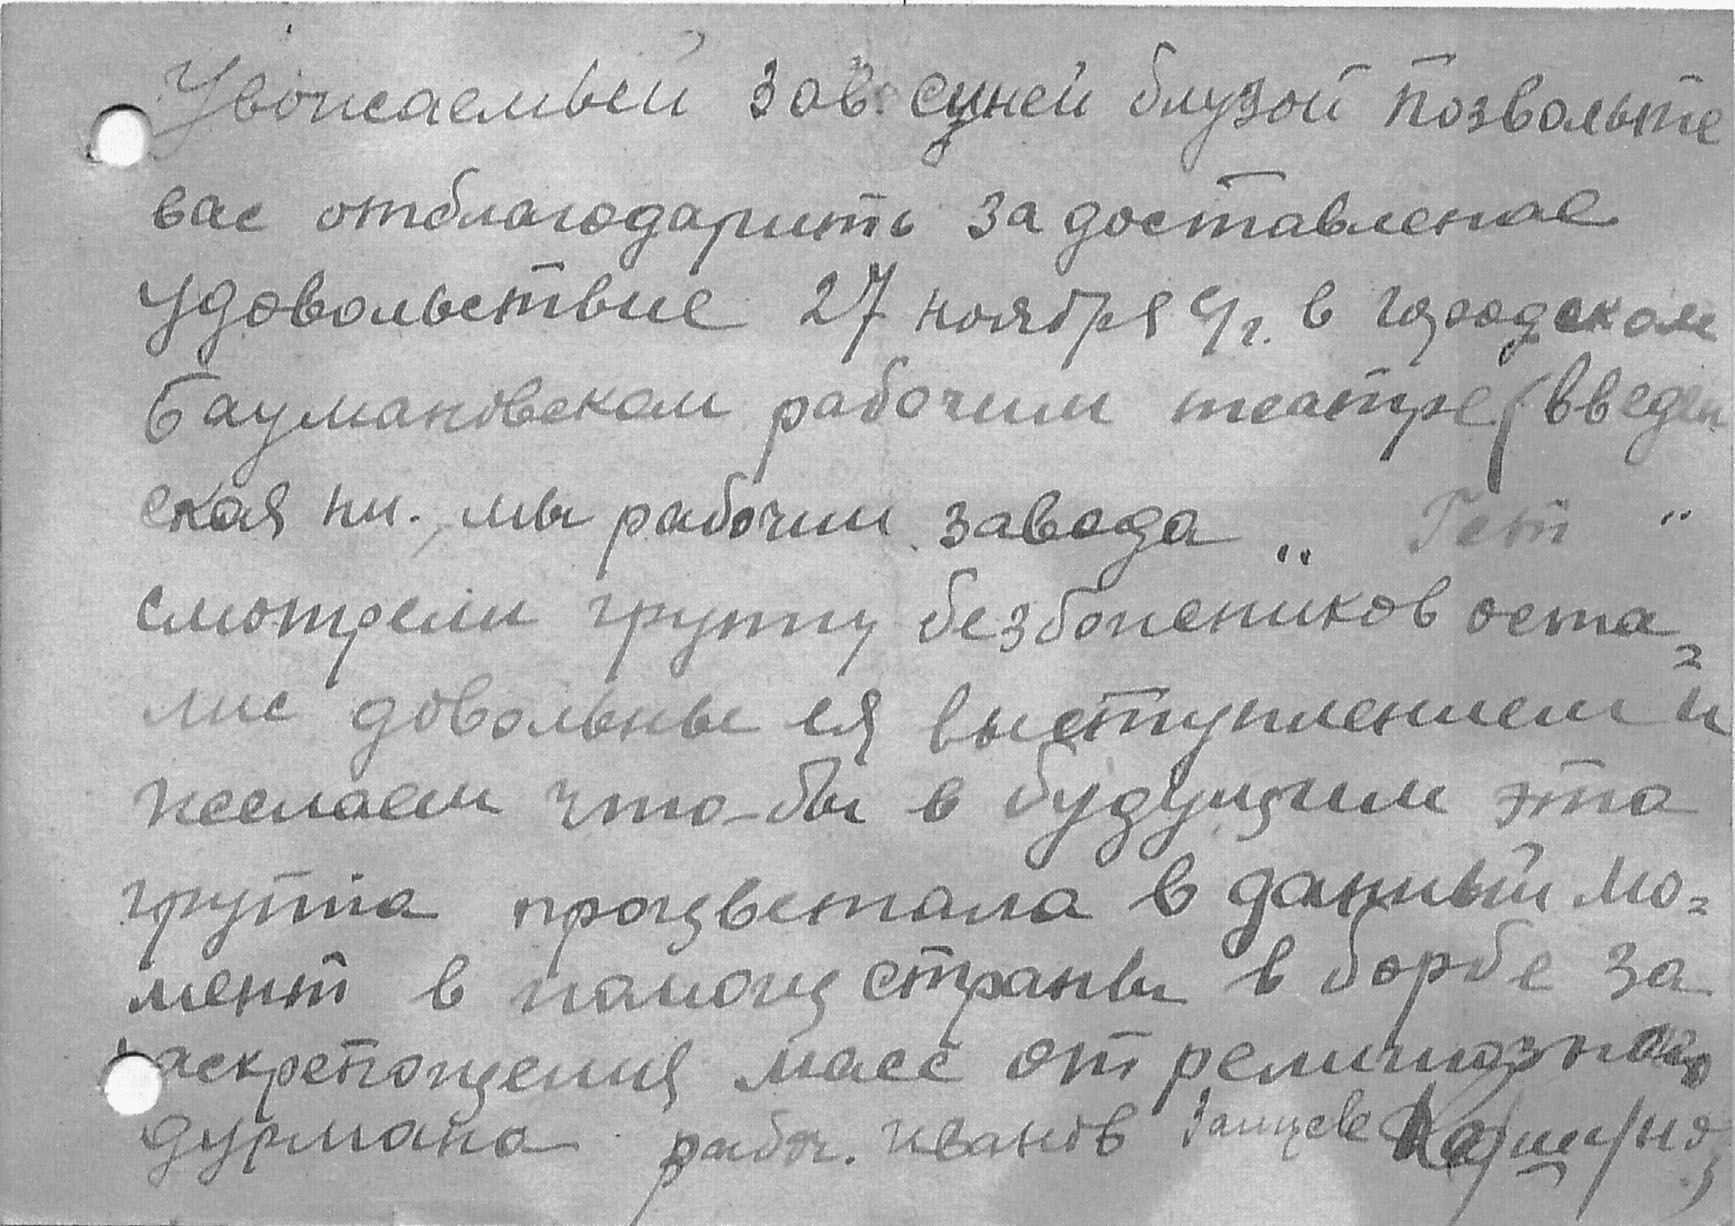 Увожаемый зав. синей блузой позвольте
вас отблагодарить за доставленае
удовольствие 27 ноября с/г. в городском
Баумановском рабочим театре (введен
ская пл., мы рабочии завода „ Гет "
смотрели группу безбожников оста=
лис довольны ея выступлением и
желаем что-бы в будущим эта
группа процветала в данный мо=
мент в помощ страны в борбе за
раскрепощения масс от религиозного
дурмана рабоч. иванов Зайцев